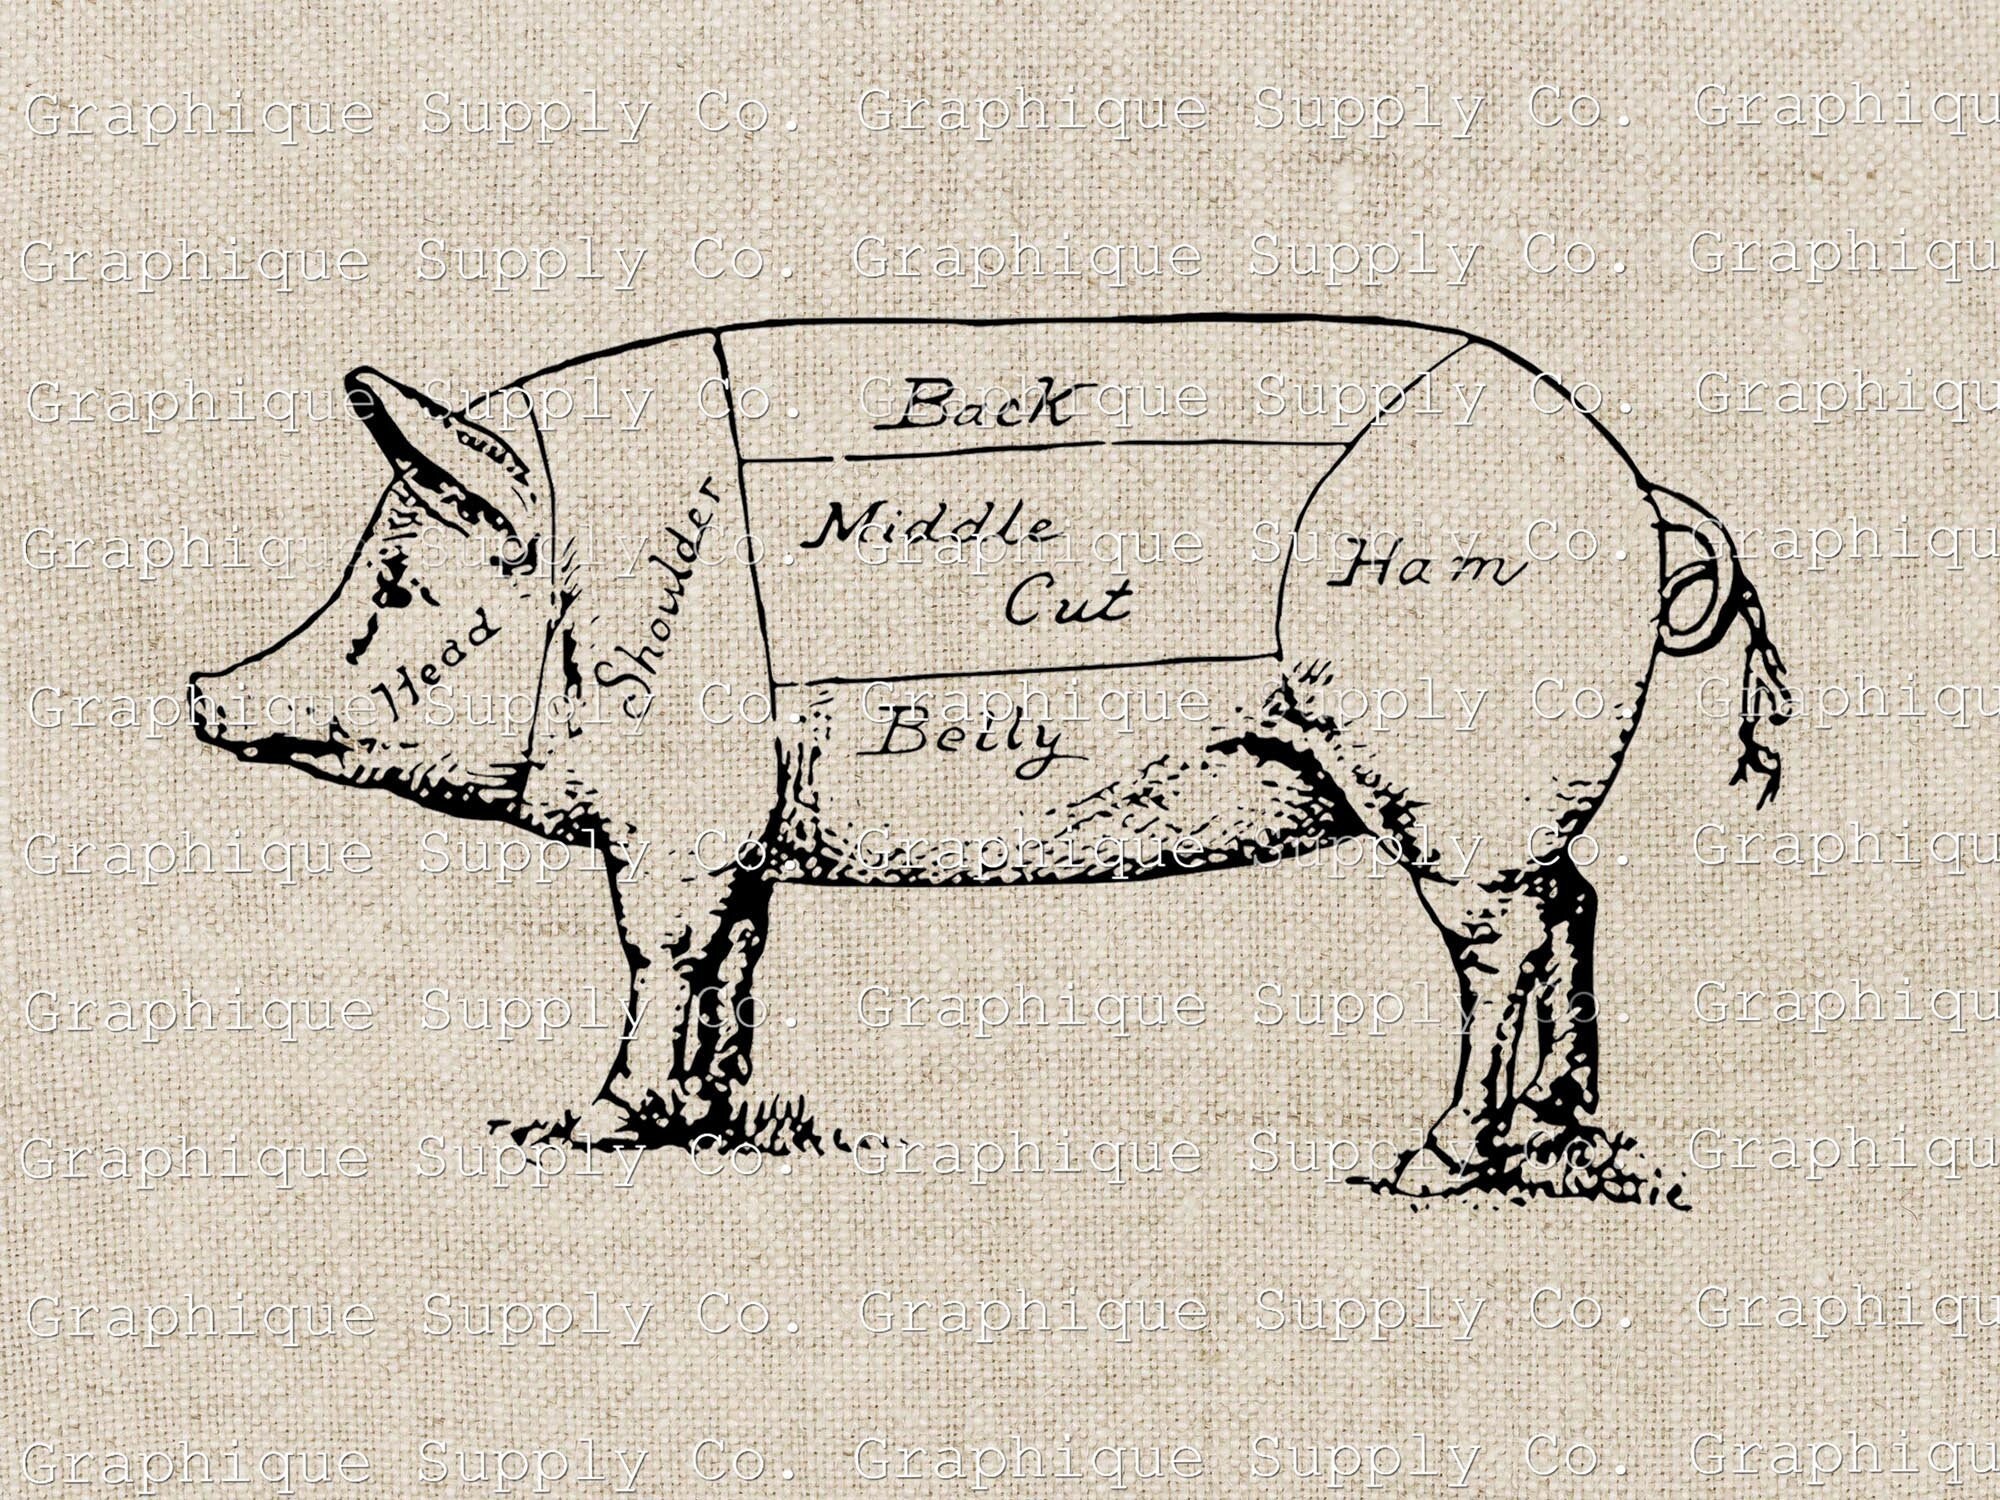 Graphique Supply Co. Graphique Supply Co. Graphiqu
Graphique Supply Co. Graphique Supply Co. Graphiqu
Graphique Supply Co. Graphique Supply Co. Graphiqu
Back
Graphique Supply Co. Graphique Supply Co. Graphiqu
Middle
Cut
Ham
Shoulder
Head
Graphique Supply Co. Graphique Supply Co. Graphiqu
Belly
Graphique Supply Co. Graphique Supply Co. Graphiqu
Graphique Supply Co. Graphique Supply Co. Graphiqu
Graphique Supply Co. Graphique Supply Co. Graphiqu
Graphique Supply Co. Graphique Supply Co. Graphiqu
Graphique Supply Co. Graphique Supply Co. Graphiqu